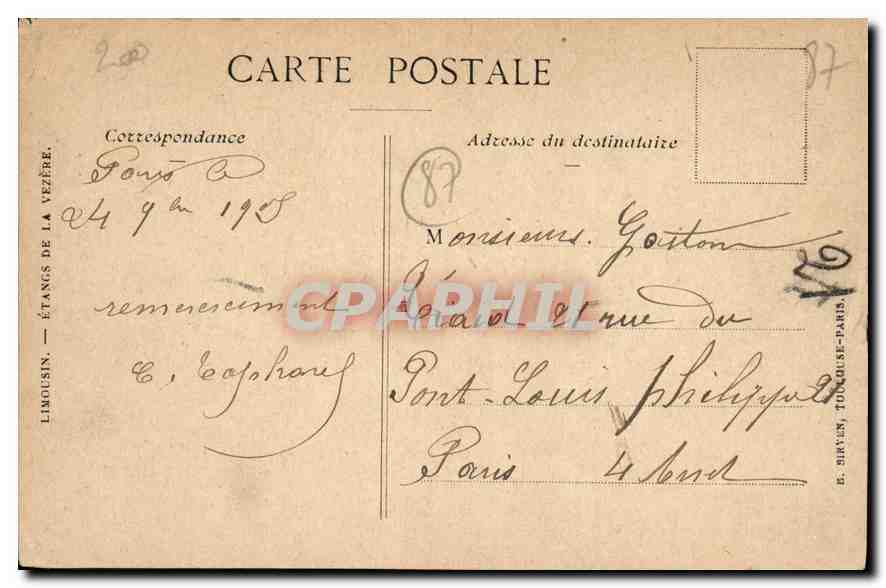 200
87
CARTE POSTALE
Correspondance
Adresse du destinataire
Paris le
24 9bre 1905
87
Monsieur Gaston
21 rue du
Pont-Louis philippe 21
Paris 4 Arrd
remerciement
CPARHIL
LIMOUSIN. — ÉTANGS DE LA VEZÈRE.
B. SIRVEN, TOULOUSE-PARIS.